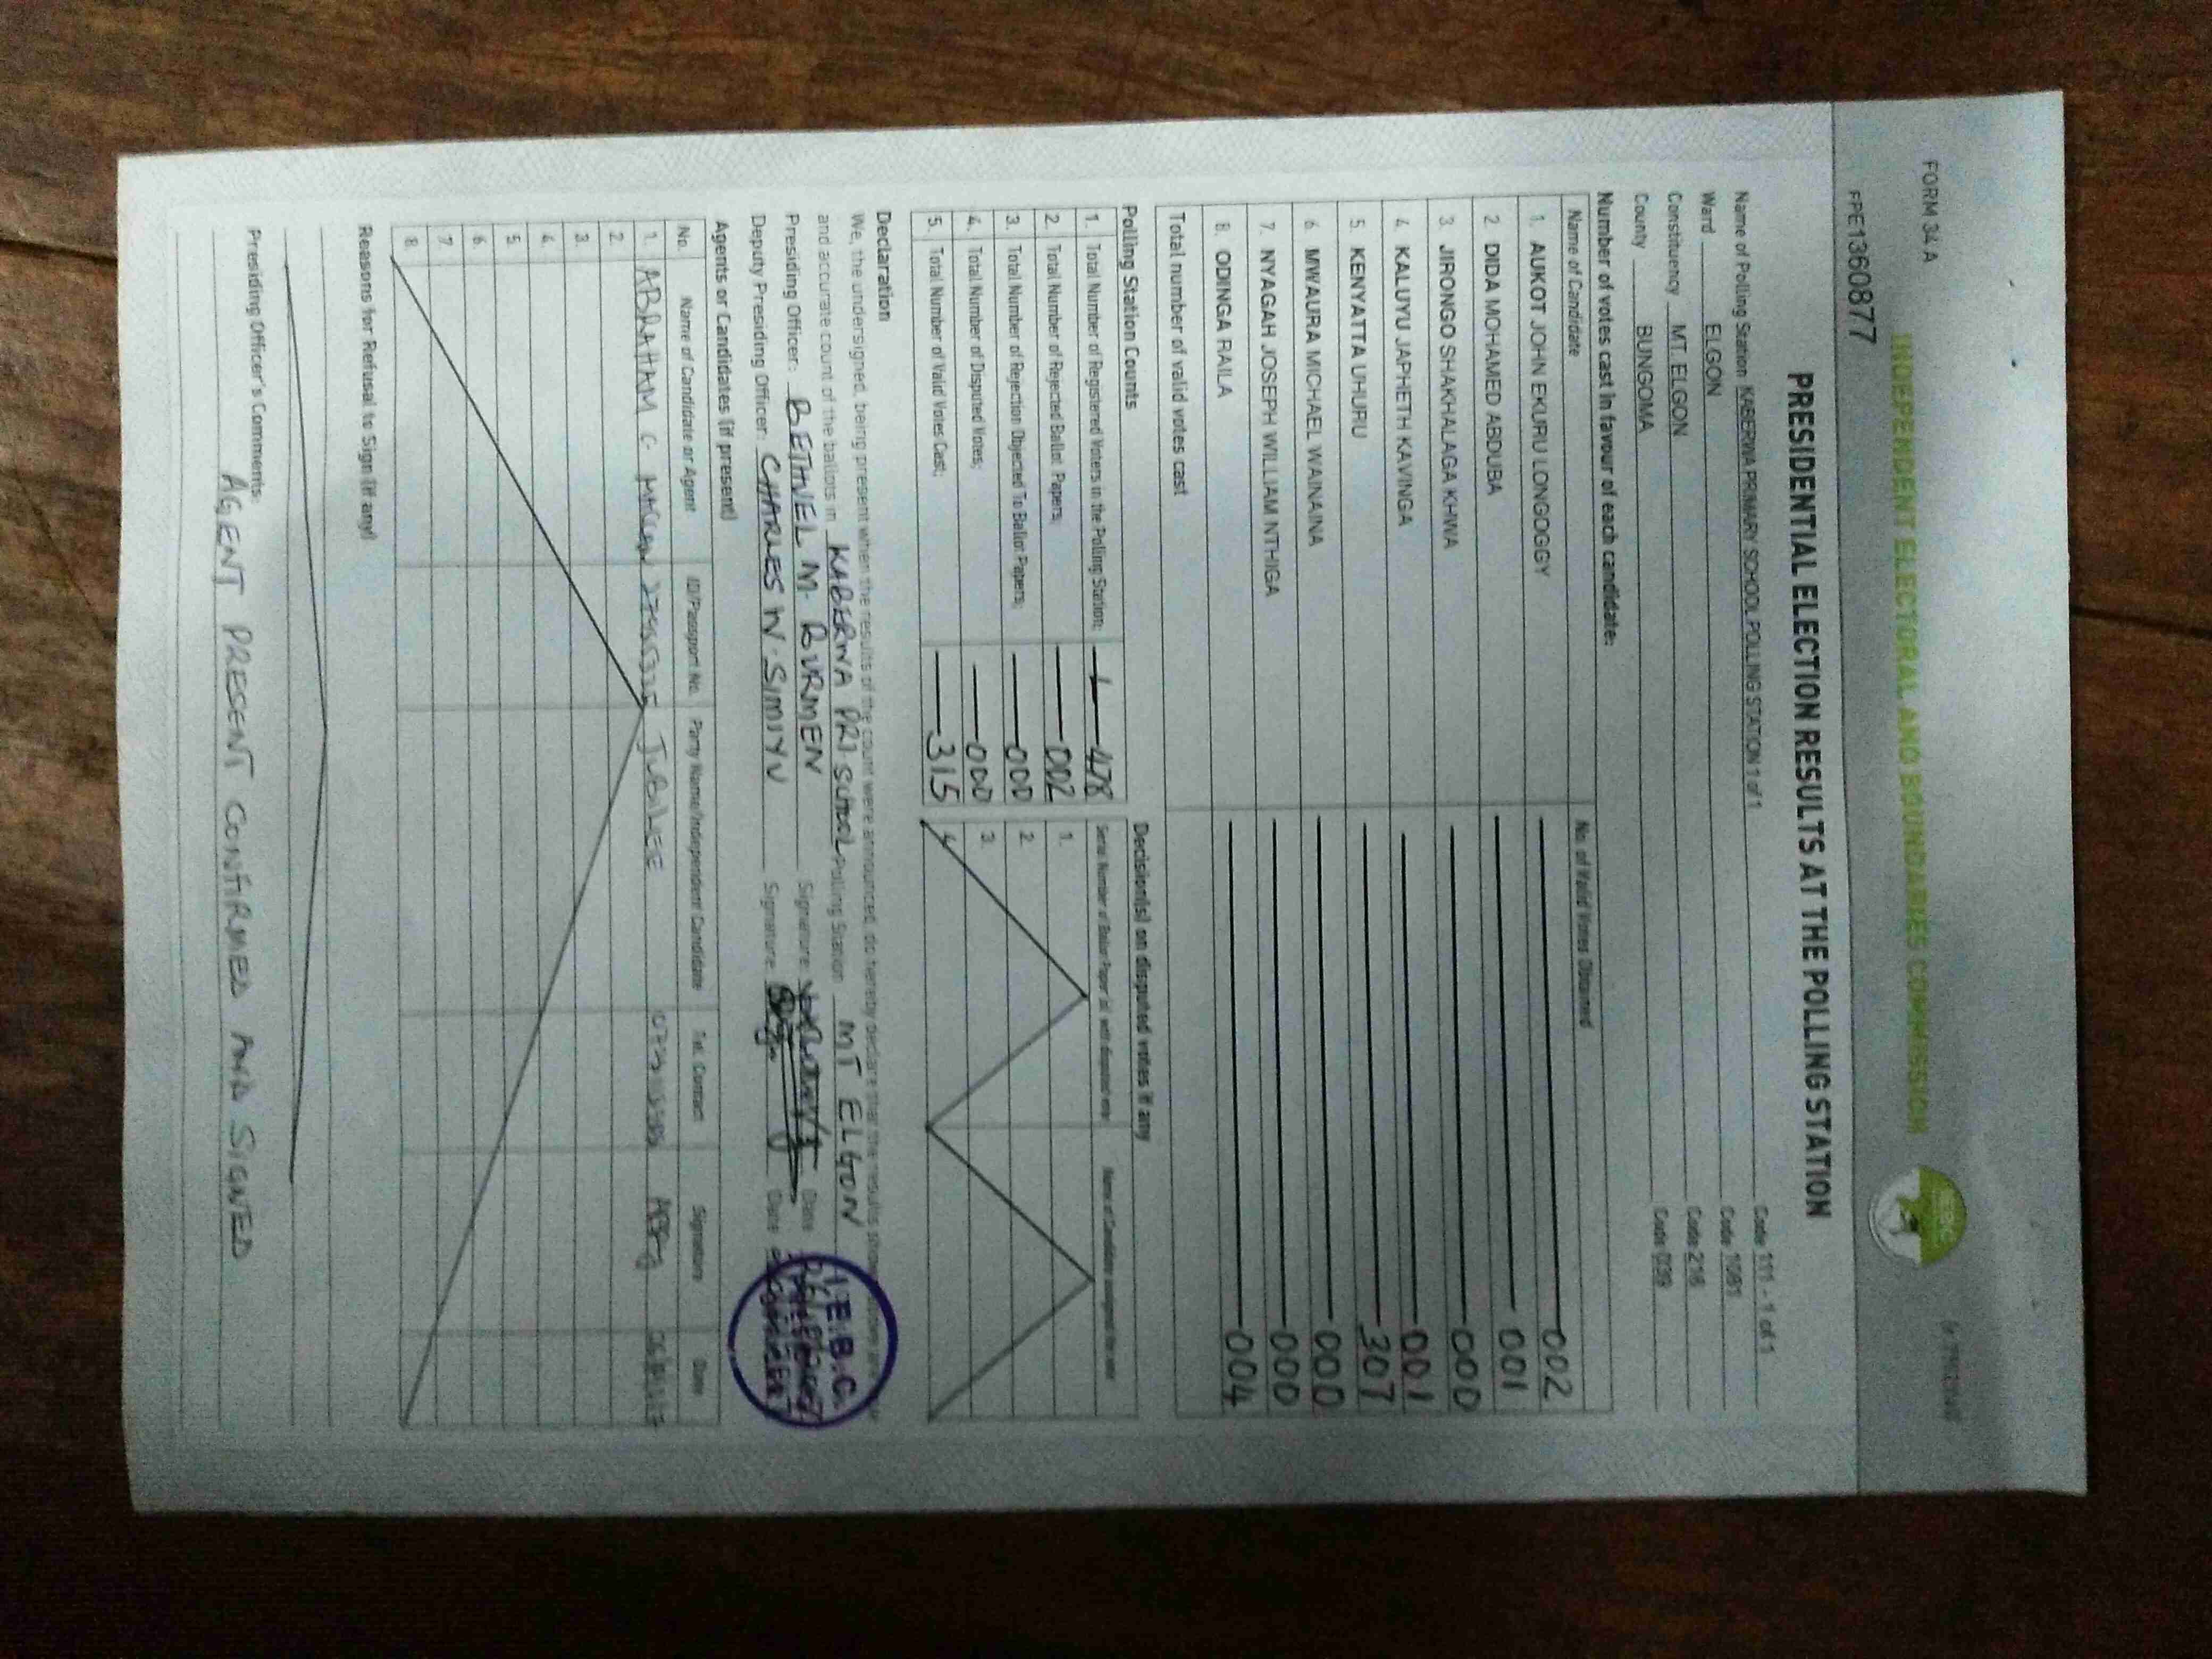 FORM 34A
INDEPENDENT ELECTORAL AND BOUNDARIES COMMISSION
IEBC
PPE1360877
PRESIDENTIAL ELECTION RESULTS AT THE POLLING STATION
Name of Polling Station KABERWA PRIMARY SCHOOL POLLING STATION 1 of 1 Code 111 - 1 of 1
Ward ELGON Code 1081
Constituency MT. ELGON Code 216
County BUNGOMA Code 039
Number of votes cast in favour of each candidate:
Name of Candidate No. of Valid Votes Obtained
1. AUKOT JOHN EKURU LONGOGGY 002
2. DIDA MOHAMED ABDUBA 001
3. JIRONGO SHAKHALAGA KHWA 000
4. KALUYU JAPHETH KAVINGA 001
5. KENYATTA UHURU 307
6. MWAURA MICHAEL WAINAINA 000
7. NYAGAH JOSEPH WILLIAM NTHIGA 000
8. ODINGA RAILA 004
Total number of valid votes cast
Polling Station Counts Decision(s) on disputed votes if any
Serial Number of Ballot Paper (s) with disputed vote
1. Total Number of Registered Voters in the Polling Station; 478
2. Total Number of Rejected Ballot Papers; 002 1.
3. Total Number of Rejection Objected To Ballot Papers; 000 2.
4. Total Number of Disputed Votes; 000 3.
5. Total Number of Valid Votes Cast; 315 4
Declaration
We, the undersigned, being present when the results of the count were announced, do hereby declare that the results
and accurate count of the ballots in KABERWA PRI SCHOOL Polling Station MT ELGON
Presiding Officer: BETHVEL M. BURMEN Signature: Date
Deputy Presiding Officer: CHARLES W. SIMIYU Signature: Date
I.E.B.C.
Agents or Candidates (if present)
No. Name of Candidate or Agent ID/Passport No. Party Name/Independent Candidate Tel. Contact Signature Date
1. ABRAHAM C JUBILEE
2.
3.
4.
5.
6.
7.
8.
Reasons for Refusal to Sign (if any)
Presiding Officer's Comments:
AGENT PRESENT CONFIRMED AND SIGNED